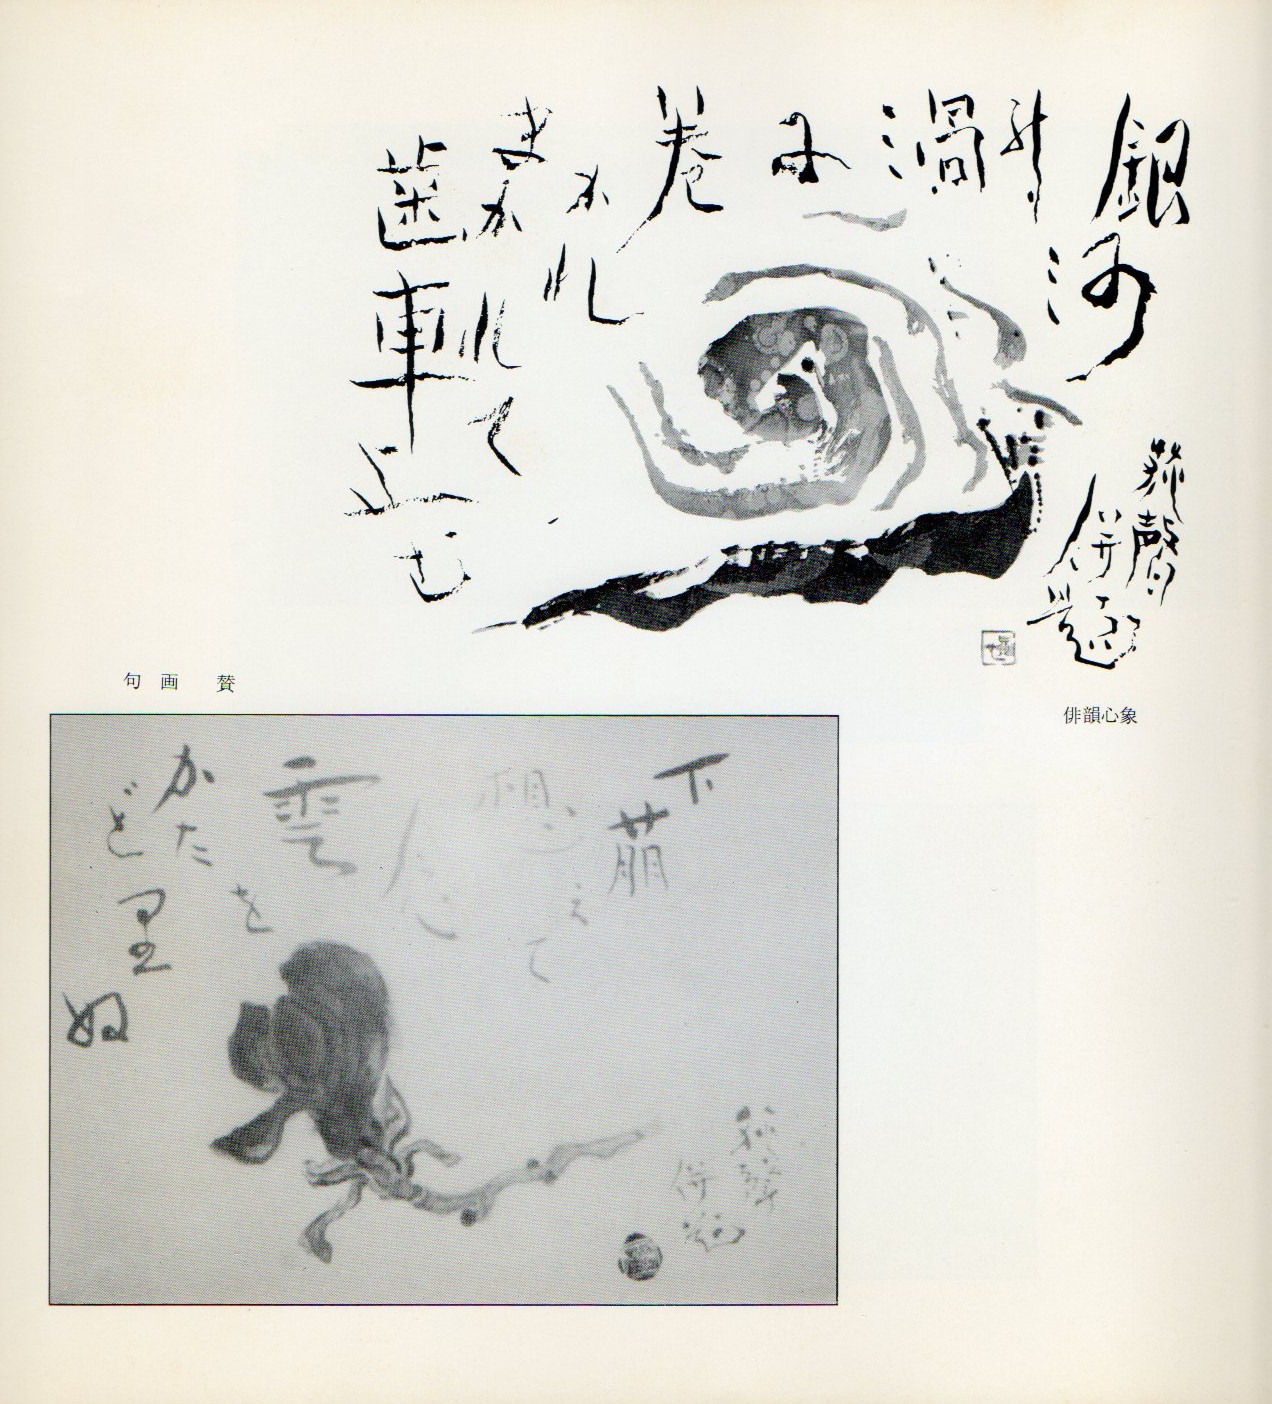 銀河
の
渦
に
巻
かれ
まかれて
歯車
止む
荻聲
併題
俳韻心象
句画 賛
下萠
想
えて
念
雲
を
かた
ど里
ぬ
併題